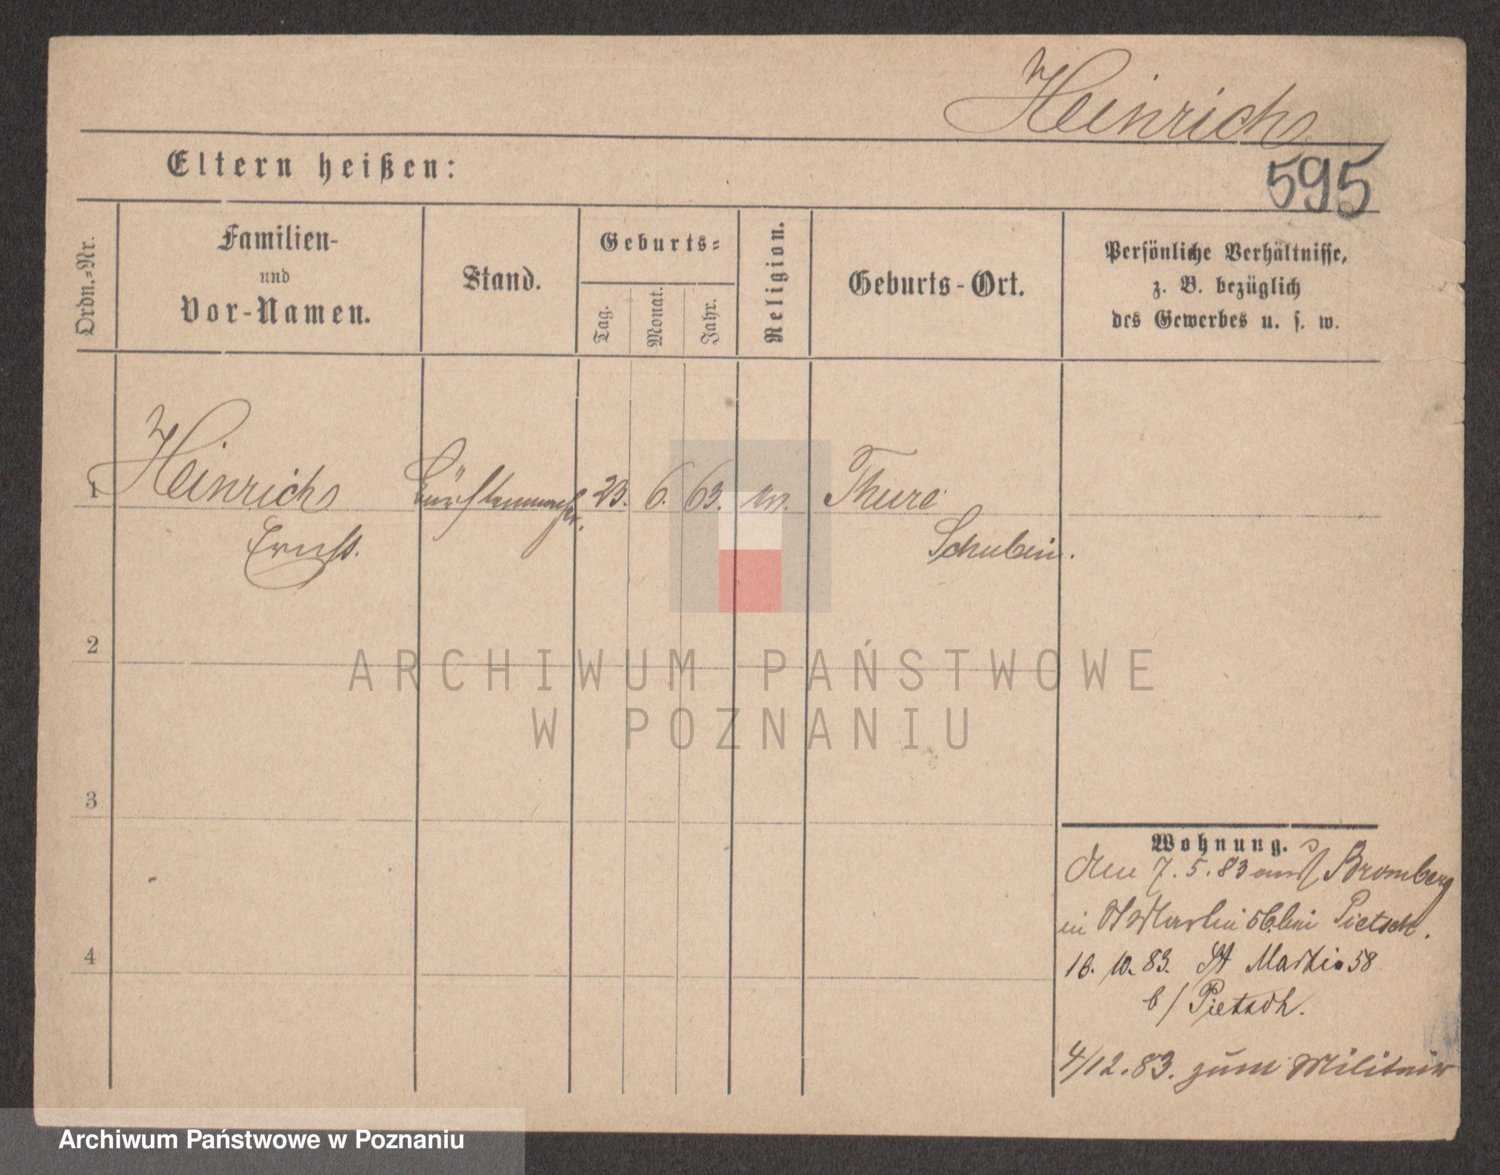 Heinrich
595
Eltern heißen:
Ordn.=Nr.
Familien-
und
Vor-Namen.
Stand.
Geburts=
Tag.
Monat.
Jahr.
Religion.
Geburts-Ort.
Persönliche Verhältnisse,
z. B. bezüglich
des Gewerbes u. s. w.
1
Heinrich
Ernst.
Bürstenmacher.
23.
6.
63.
Thure
Schubin.
2
3
4
Wohnung.
den 7. 5. 83 aus Bromberg
in St Martin 56. bei Pietsch.
16. 10. 83. St Martin 58
b/ Pietsch.
4/12. 83. zum Militair
ARCHIWUM PAŃSTWOWE
W POZNANIU
Archiwum Państwowe w Poznaniu